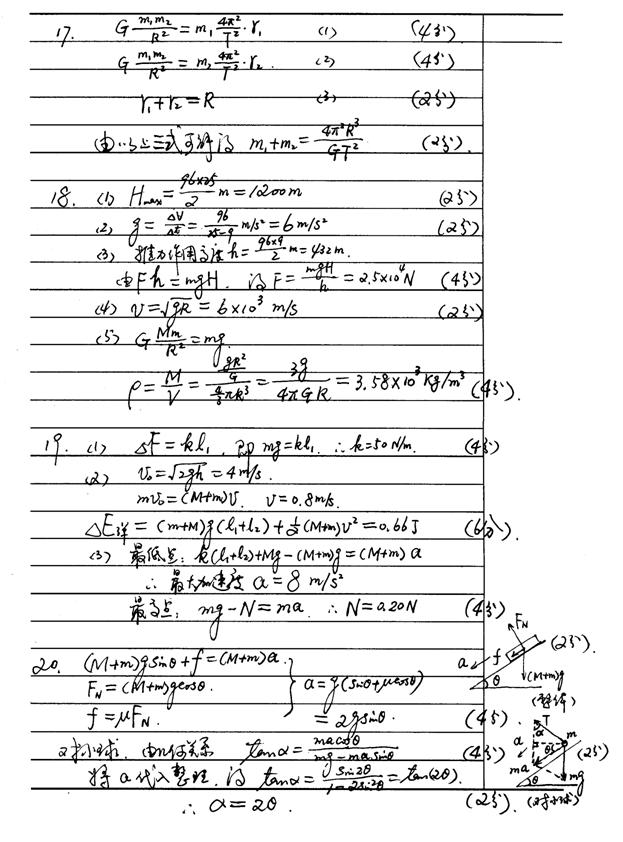 17. G m₁m₂/R² = m₁ 4π²/T² · r₁ (1) (4分)
G m₁m₂/R² = m₂ 4π²/T² · r₂ (2) (4分)
r₁+r₂=R (3) (2分)
由以上三式可解得 m₁+m₂= 4π²R³/GT² (2分).
18. (1) Hmax = 96×25/2 m = 1200m (2分)
(2) g = ΔV/Δt = 96/(25-9) m/s² = 6 m/s² (2分)
(3) 推力作用高度 h = 96×9/2 m = 432m.
由Fh=mgH. 得 F = mgH/h = 2.5×10⁴N (4分)
(4) v=√gR = 6×10³ m/s (2分)
(5) G Mm/R² = mg
ρ = M/V = (gR²/G)/(4/3 πR³) = 3g/4πGR = 3.58×10³ kg/m³ (4分).
19. (1) ΔF = kl₁, 即 mg=kl₁ ∴ k=50N/m. (4分)
(2) v₀=√2gh = 4m/s.
mv₀=(M+m)v. v=0.8m/s.
ΔE弹 = (m+M)g(l₁+l₂)+½(M+m)v² = 0.66J (6分)
(3) 最低点: k(l₁+l₂)+Mg-(M+m)g=(M+m)a
∴ 最大加速度 a = 8 m/s²
最高点: mg-N=ma. ∴ N=0.20N (4分)
20. (M+m)gsinθ+f=(M+m)a.
F_N=(M+m)gcosθ. a=g(sinθ+μcosθ)
f=μF_N. =2gsinθ. (4分).
F_N
(2分).
a f
(M+m)g
θ
(整体)
对小球, 由几何关系 tanα = macosθ/(mg-masinθ) (4分)
将a代入整理, 得 tanα = sin2θ/(1-2sin²θ) = tan(2θ).
∴ α=2θ. (2分).
T
α m
a θ (2分)
ma
mg
θ
(对小球)